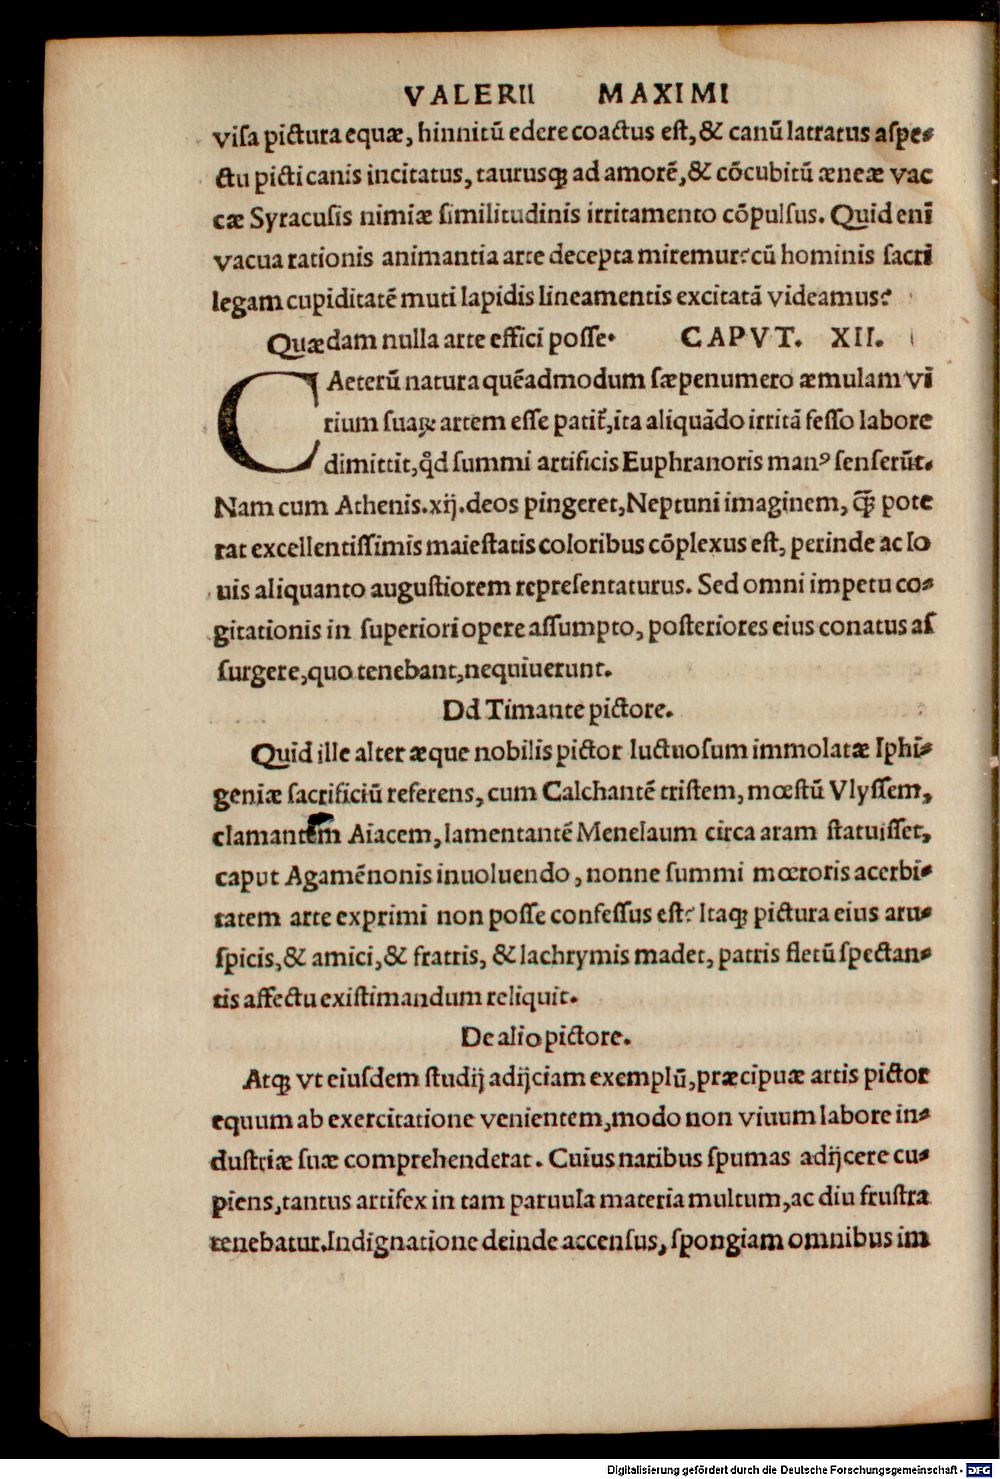 VALERII MAXIMI
viſa pictura equæ, hinnitũ edere coactus eſt, & canũ latratus aſpe-
ctu picti canis incitatus, taurusqꝫ ad amorẽ, & cõcubitũ æneæ vac
cæ Syracuſis nimiæ ſimilitudinis irritamento cõpulſus. Quid enĩ
vacua rationis animantia arte decepta miremur? cũ hominis ſacri
legam cupiditatẽ muti lapidis lineamentis excitatã videamus?
Quædam nulla arte effici poſſe. CAPVT. XII.
CAeterũ natura quẽadmodum ſæpenumero æmulam vĩ
rium ſuaꝝ artem eſſe patit᷑, ita aliquãdo irritã feſſo labore
dimittit, qd̓ ſummi artificis Euphranoris manꝰ ſenſerũt.
Nam cum Athenis.xij.deos pingeret, Neptuni imaginem, q̃ꝫ pote
rat excellentiſſimis maieſtatis coloribus cõplexus eſt, perinde ac Io
uis aliquanto auguſtiorem repreſentaturus. Sed omni impetu co-
gitationis in ſuperiori opere aſſumpto, poſteriores eius conatus aſ
ſurgere, quo tenebant, nequiuerunt.
Dd Timante pictore.
Quid ille alter æque nobilis pictor luctuoſum immolatæ Iphi-
geniæ ſacrificiũ referens, cum Calchantẽ triſtem, mœſtũ Vlyſſem,
clamantem Aiacem, lamentantẽ Menelaum circa aram ſtatuiſſet,
caput Agamẽnonis inuoluendo, nonne ſummi mœroris acerbi-
tatem arte exprimi non poſſe confeſſus eſt? Itaqꝫ pictura eius aru-
ſpicis, & amici, & fratris, & lachrymis madet, patris fletũ ſpectan-
tis affectu exiſtimandum reliquit.
De alio pictore.
Atqꝫ vt eiuſdem ſtudij adijciam exemplũ, præcipuæ artis pictor
equum ab exercitatione venientem, modo non viuum labore in-
duſtriæ ſuæ comprehenderat. Cuius naribus ſpumas adijcere cu-
piens, tantus artifex in tam paruula materia multum, ac diu fruſtra
tenebatur. Indignatione deinde accenſus, ſpongiam omnibus im
Digitalisierung gefördert durch die Deutsche Forschungsgemeinschaft - DFG